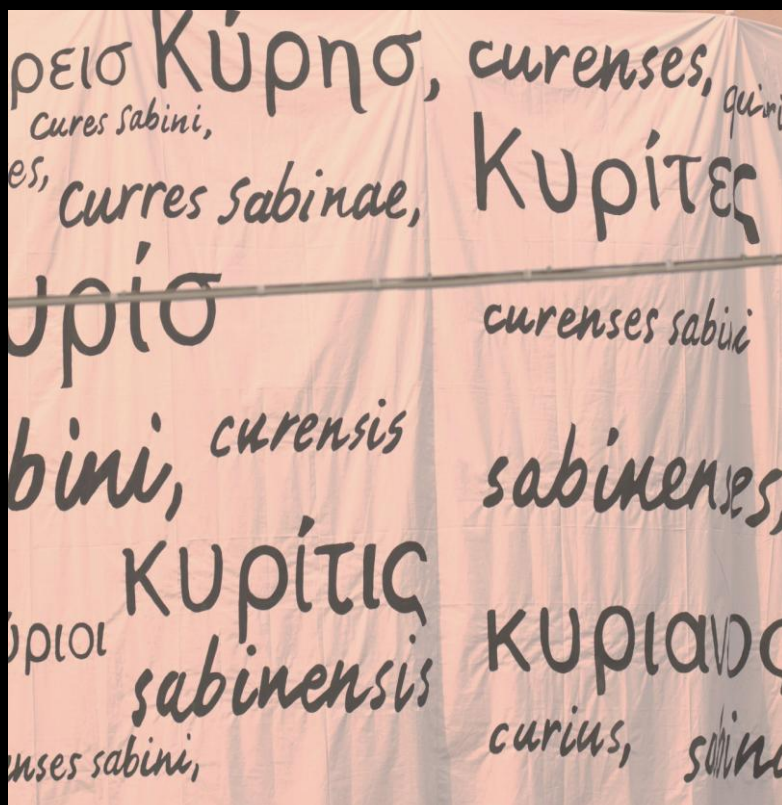 ρεισ Κύρησ, curenses,
cures sabini,
es, curres sabinae, Κυρίτες
υρίσ curenses sabini
bini, curensis sabinenses,
κυρίτις
ύριοι κυριανος
sabinensis
enses sabini, curius,